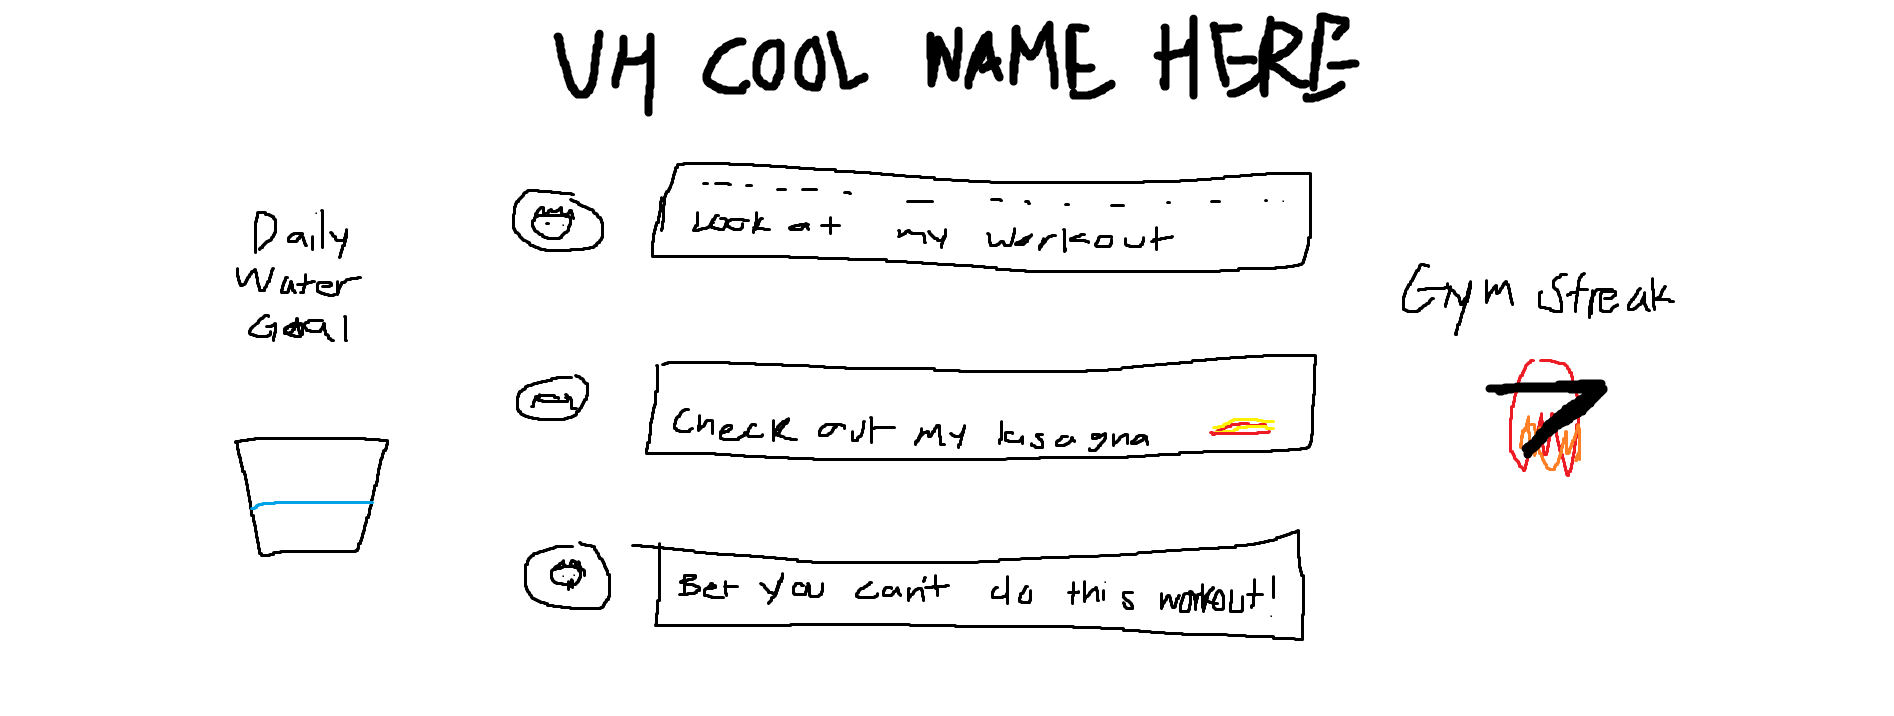 UH COOL NAME HERE
Daily
Water
Goal
Look at my workout
Check out my lasagna
Bet you can't do this workout!
Gym Streak
7